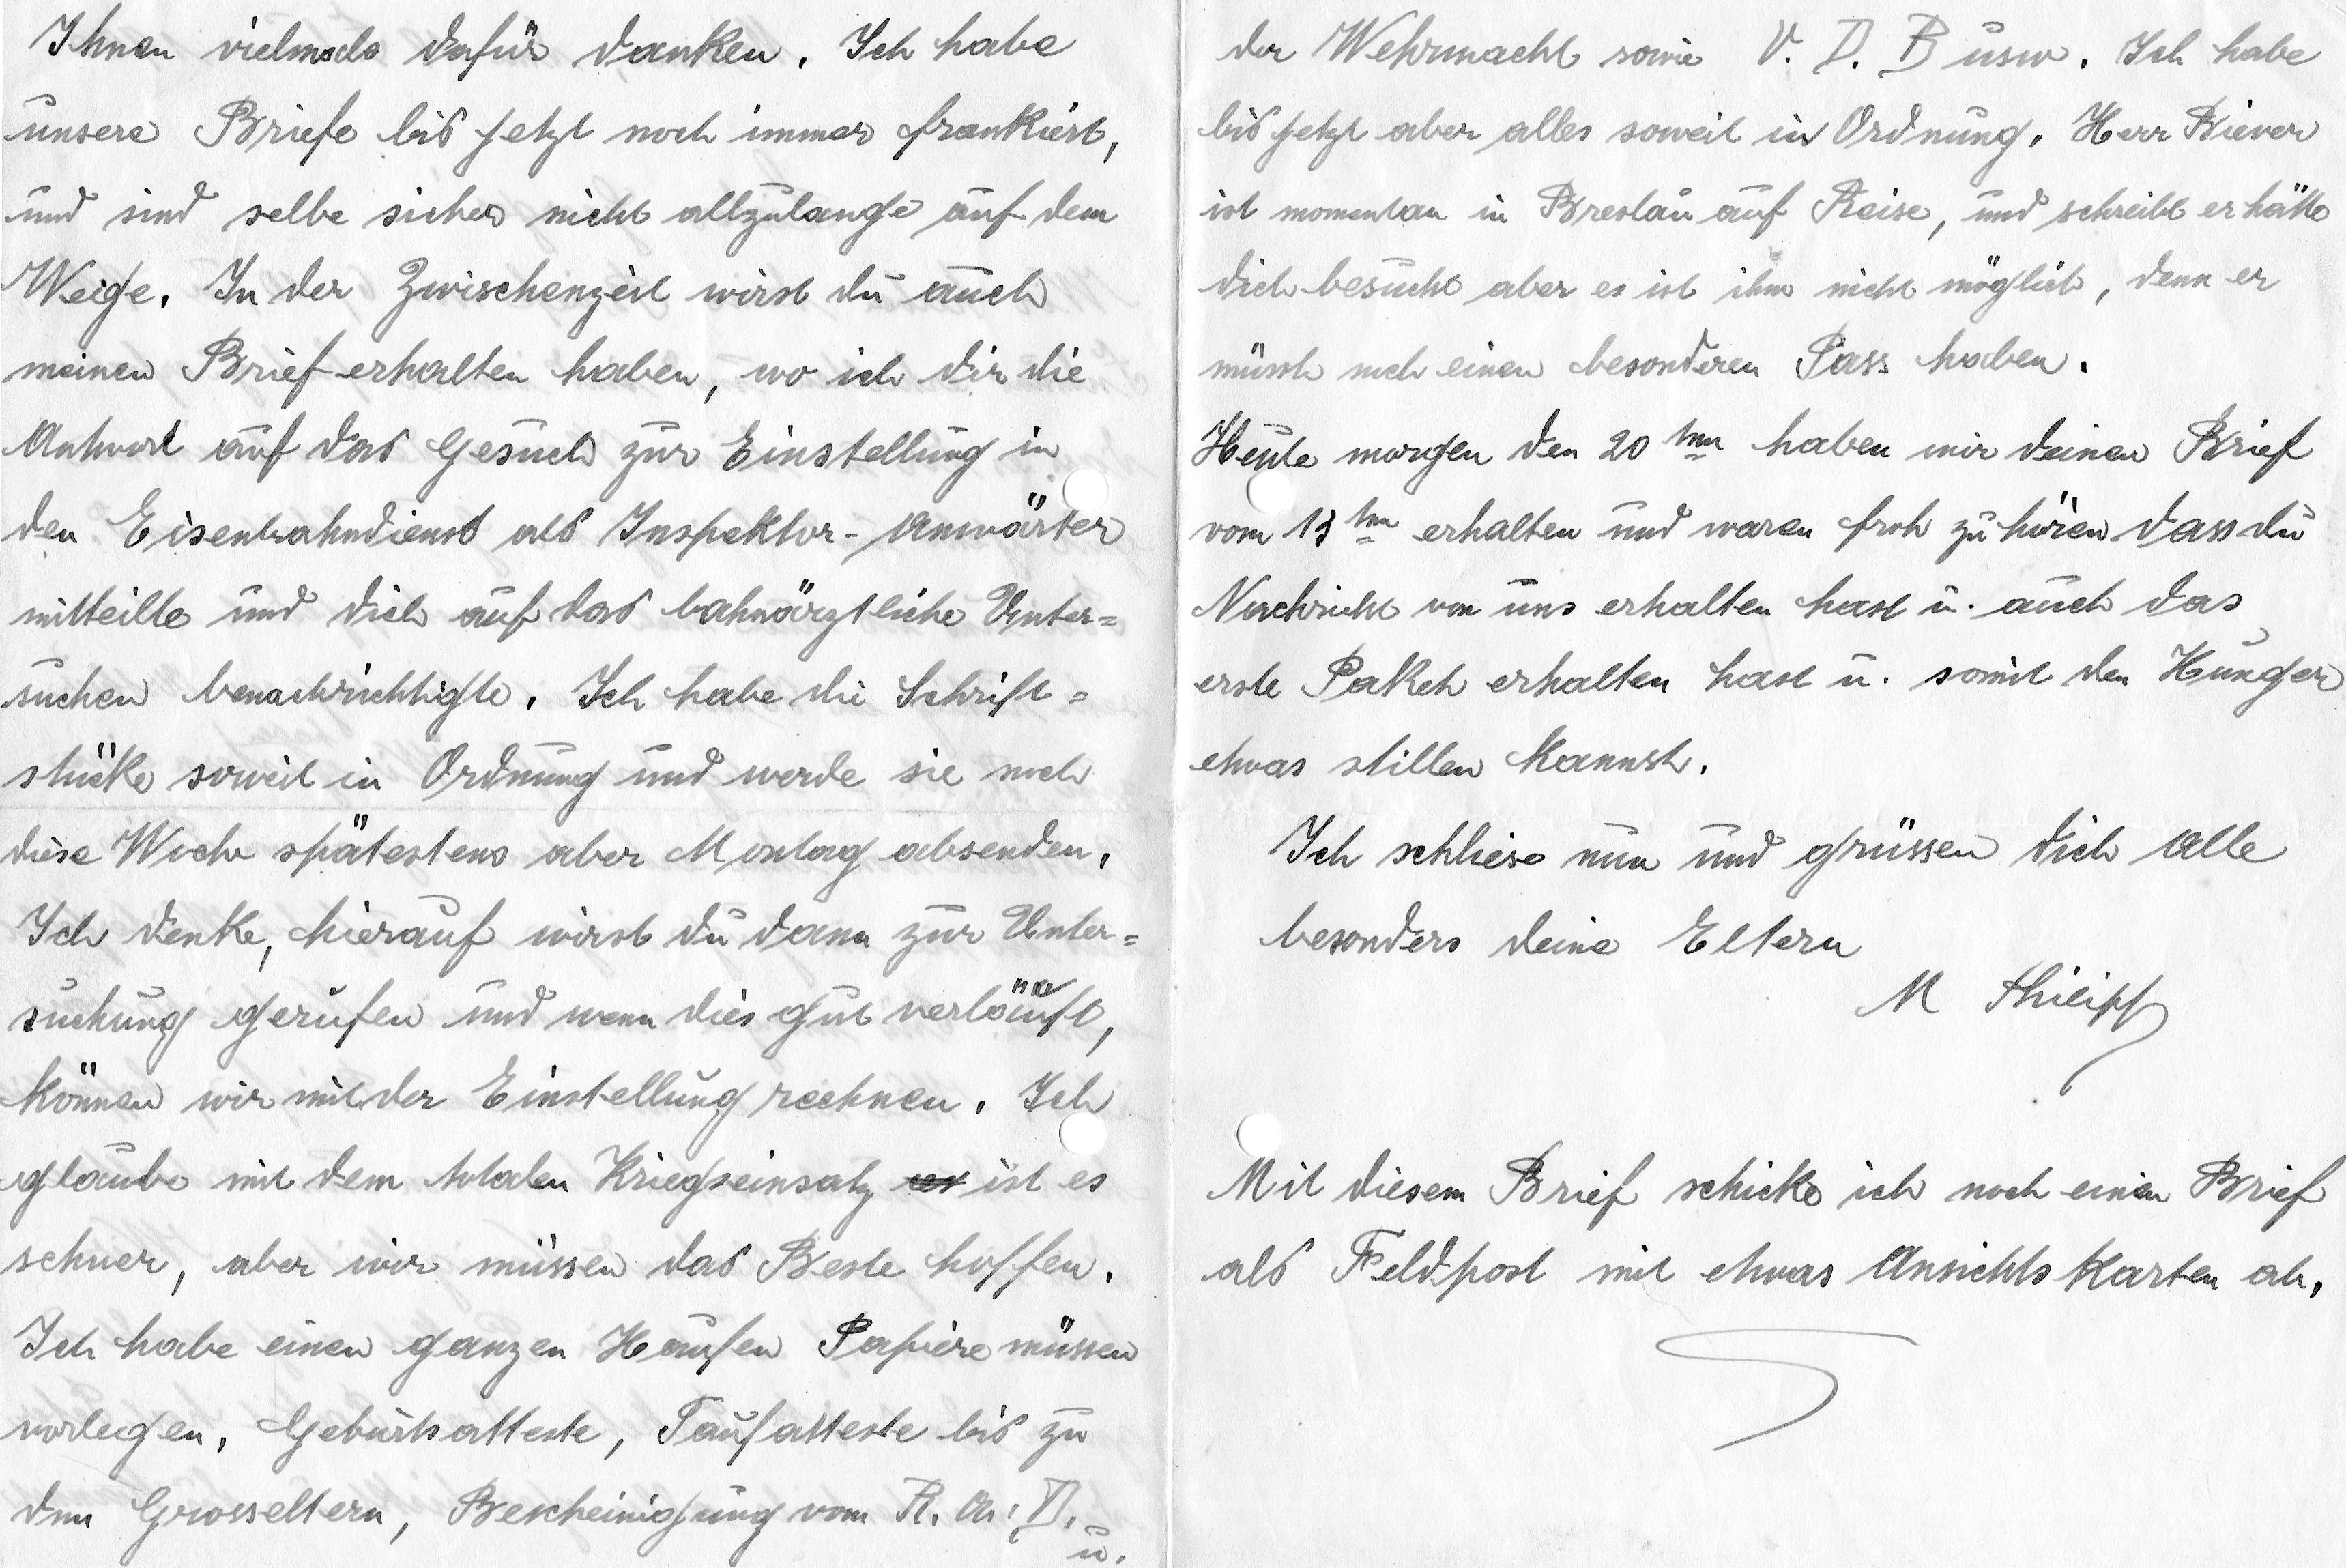 Ihnen vielmals dafür danken. Ich habe
unsere Briefe bis jetzt noch immer frankiert,
und sind selbe sicher nicht allzulange auf dem
Wege. In der Zwischenzeit wirst du auch
meinen Brief erhalten haben, wo ich dir die
Antwort auf das Gesuch zur Einstellung in
den Eisenbahndienst als Inspektor-Anwärter
mitteilte und dich auf das bahnärztliche Unter=
suchen benachrichtigte. Ich habe die Schrift=
stücke soweit in Ordnung und werde sie noch
diese Woche spätestens aber Montag absenden.
Ich denke, hierauf wirst du dann zur Unter=
suchung gerufen und wenn dies gut verläuft,
können wir mit der Einstellung rechnen. Ich
glaube mit dem totalen Kriegseinsatz ist es
schwer, aber wir müssen das Beste hoffen.
Ich habe einen ganzen Haufen Papiere müssen
vorlegen, Geburtsatteste, Taufatteste bis zu
den Grosseltern, Bescheinigung vom R. A. D.
u.
der Wehrmacht sowie V. D. B usw. Ich habe
bis jetzt aber alles soweit in Ordnung. Herr Biever
ist momentan in Breslau auf Reise, und schreibt er hätte
dich besucht aber es ist ihm nicht möglich, denn er
müsste noch einen besonderen Pass haben.
Heute morgen den 20ten haben wir deinen Brief
vom 13ten erhalten und waren froh zu hören dass du
Nachricht von uns erhalten hast u. auch das
erste Paketh erhalten hast u. somit den Hunger
etwas stillen kannst.
Ich schliese nun und grüssen dich Alle
besonders deine Eltern
M Philipp
Mit diesem Brief schicke ich noch einen Brief
als Feldpost mit etwas Ansichtskarten ab.